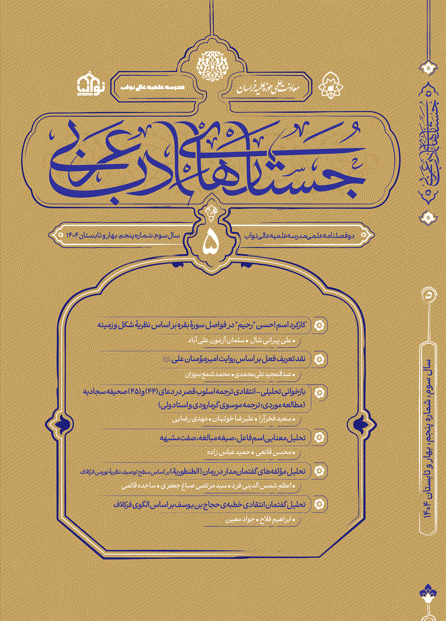 معاونت علمی حوزه علمیه خراسان
مدرسه علمیه عالی نواب
نواب
جستارهای ادب عربی
دوفصلنامه علمی مدرسه علمیه عالی نواب
سال سوم، شماره پنجم، بهار و تابستان ۱۴۰۴
۵
کارکرد اسم احسن "رحیم" در فواصل سورۀ بقره بر اساس نظریۀ شکل و زمینه
• علی پیرانی شال • سلمان آزمون علی آباد
نقد تعریف فعل بر اساس روایت امیرمؤمنان علی
• عبدالمجید علی‌محمدی • محمد شمع سوزان
بازخوانی تحلیلی - انتقادی ترجمه اسلوب قصر در دعای (۴۴) و (۴۵) صحیفه سجادیه
(مطالعه موردی: ترجمه موسوی گرمارودی و استاد ولی)
• سعید فخرآرا • علیرضا خوئینان • مهدی رضایی
تحلیل معنایی اسم فاعل، صیغه مبالغه، صفت مشبهه
• محسن قانعی • حمید عباس زاده
تحلیل مؤلفه‌های گفتمان‌مدار در رمان (الطنطوریة) بر اساس سطح توصیف نظریۀ نورمن فرکلاف
• اعظم شمس الدینی فرد • سید مرتضی صباغ جعفری • ساجده قائمی
تحلیل گفتمان انتقادی خطبه‌ی حجاج بن یوسف بر اساس الگوی فرکلاف
• ابراهیم فلاح • جواد معین
جستارهای ادب عربی
۵
سال سوم، شماره پنجم، بهار و تابستان ۱۴۰۴